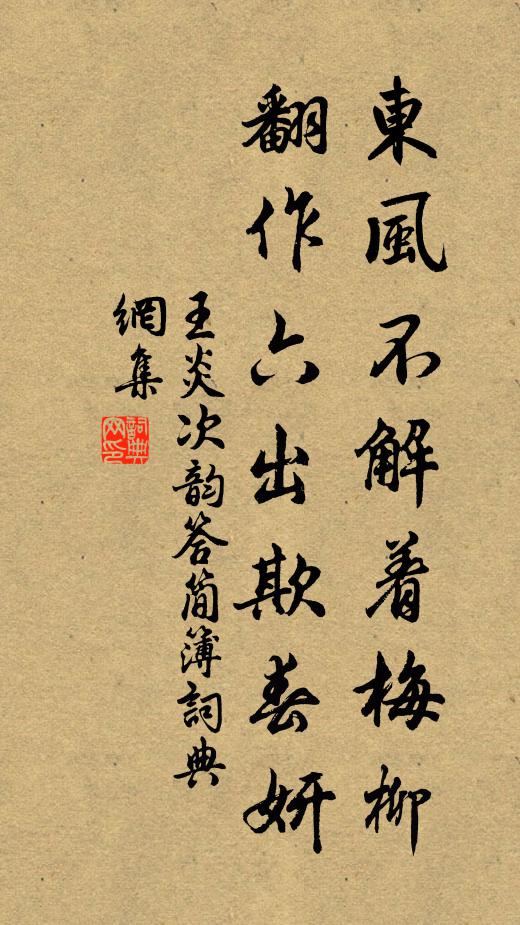 東風不解着梅柳
翻作六出欺春妍
王炎次韵答簡簿詞典
網集
詞典
网印